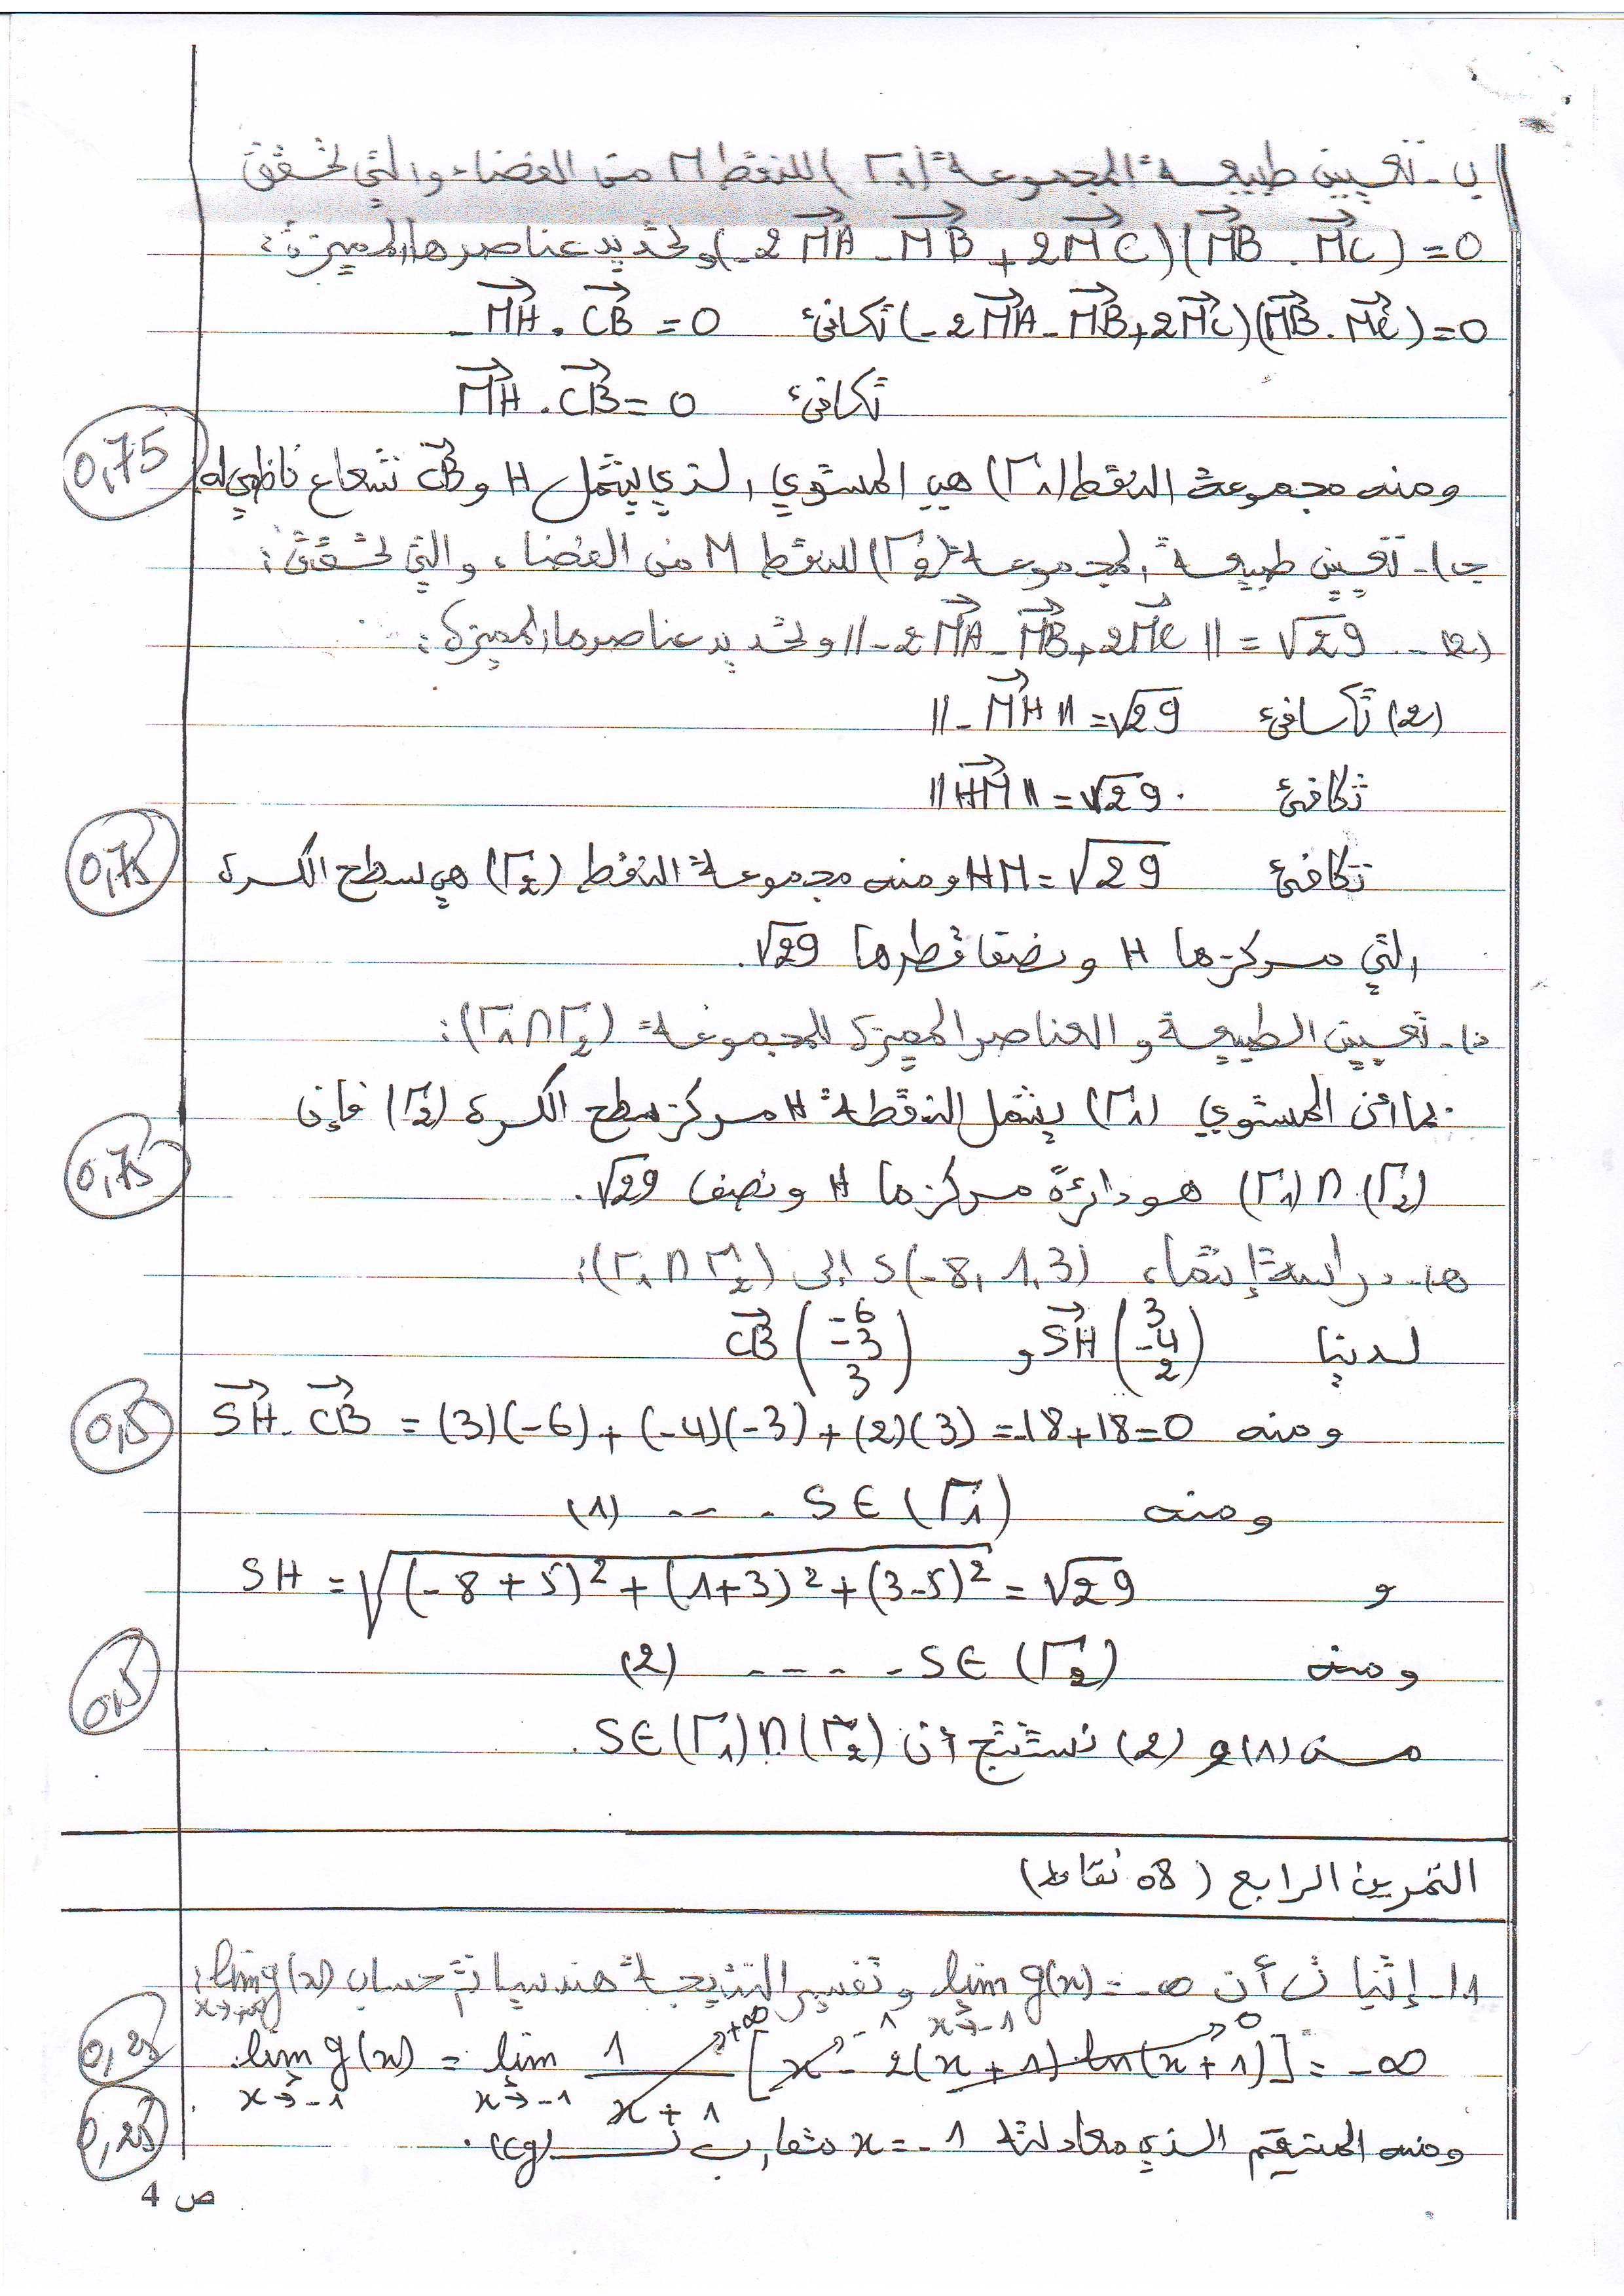 ب - تعيين طبيعة المجموعة (Γ1) للنقط M من الفضاء والتي تحقق
(-2MA - MB + 2MC)(MB . MC) = 0 وتحديد عناصرها المميزة:
(-2MA - MB + 2MC)(MB . MC) = 0 تكافئ -MH . CB = 0
تكافئ MH . CB = 0
0,75
ومنه مجموعة النقط (Γ1) هي المستوي الذي يشمل H و CB شعاع ناظمي له.
ج) - تعيين طبيعة المجموعة (Γ2) للنقط M من الفضاء والتي تحقق:
(2) .. ||-2MA - MB + 2MC|| = √29 وتحديد عناصرها المميزة:
(2) تكافئ ||-MH|| = √29
تكافئ ||HM|| = √29 .
0,75
تكافئ HM = √29 ومنه مجموعة النقط (Γ2) هي سطح الكرة
التي مركزها H ونصف قطرها √29.
د) - تعيين الطبيعة و العناصر المميزة للمجموعة (Γ1 ∩ Γ2):
بما أن المستوي (Γ1) يشمل النقطة H مركز سطح الكرة (Γ2) فإن
0,75
(Γ1) ∩ (Γ2) هو دائرة مركزها H ونصف √29.
هـ) - دراسة إنتماء S(-8, 1, 3) إلى (Γ1 ∩ Γ2):
لدينا SH (3 -4 2) و CB (-6 -3 3)
0,5
ومنه SH . CB = (3)(-6) + (-4)(-3) + (2)(3) = -18+18=0
ومنه S ∈ (Γ1) .... (1)
و SH = √((-8+5)² + (1+3)² + (3-5)²) = √29
0,5
ومنه S ∈ (Γ2) ..... (2)
من (1) و (2) نستنتج أن S ∈ (Γ1) ∩ (Γ2) .
التمرين الرابع (08 نقاط)
1.I - إثبات أن lim g(x) = -∞ x→-1 وتفسير النتيجة هندسيا ثم حساب lim g(x) x→+∞:
0,25
lim g(x) x→-1 = lim x→-1 1/(x+1) +∞ [x -1 - 2(x+1) ln(x+1) 0] = -∞
0,25
ومنه المستقيم الذي معادلته x = -1 مقارب لـ (Cg) .
ص 4